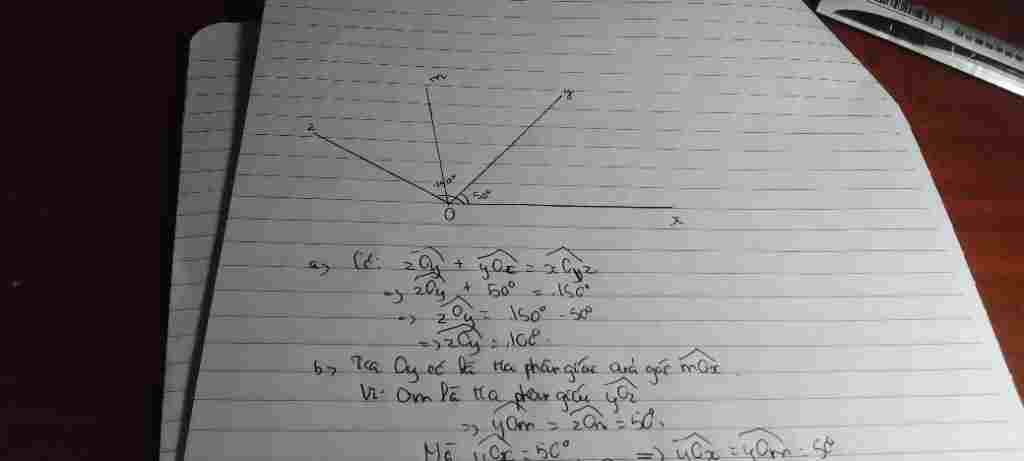 m
y
z
150°
50°
O
x
a, Có: zOy + yOx = xOz
=> zOy + 50° = 150°
=> zOy = 150° - 50°
=> zOy = 100°
b, Tia Oy có là tia phân giác của góc mOx
Vì Om là tia phân giác yOz
=> yOm = zOm = 50°
Mà yOx = 50° => yOx = yOm = 50°